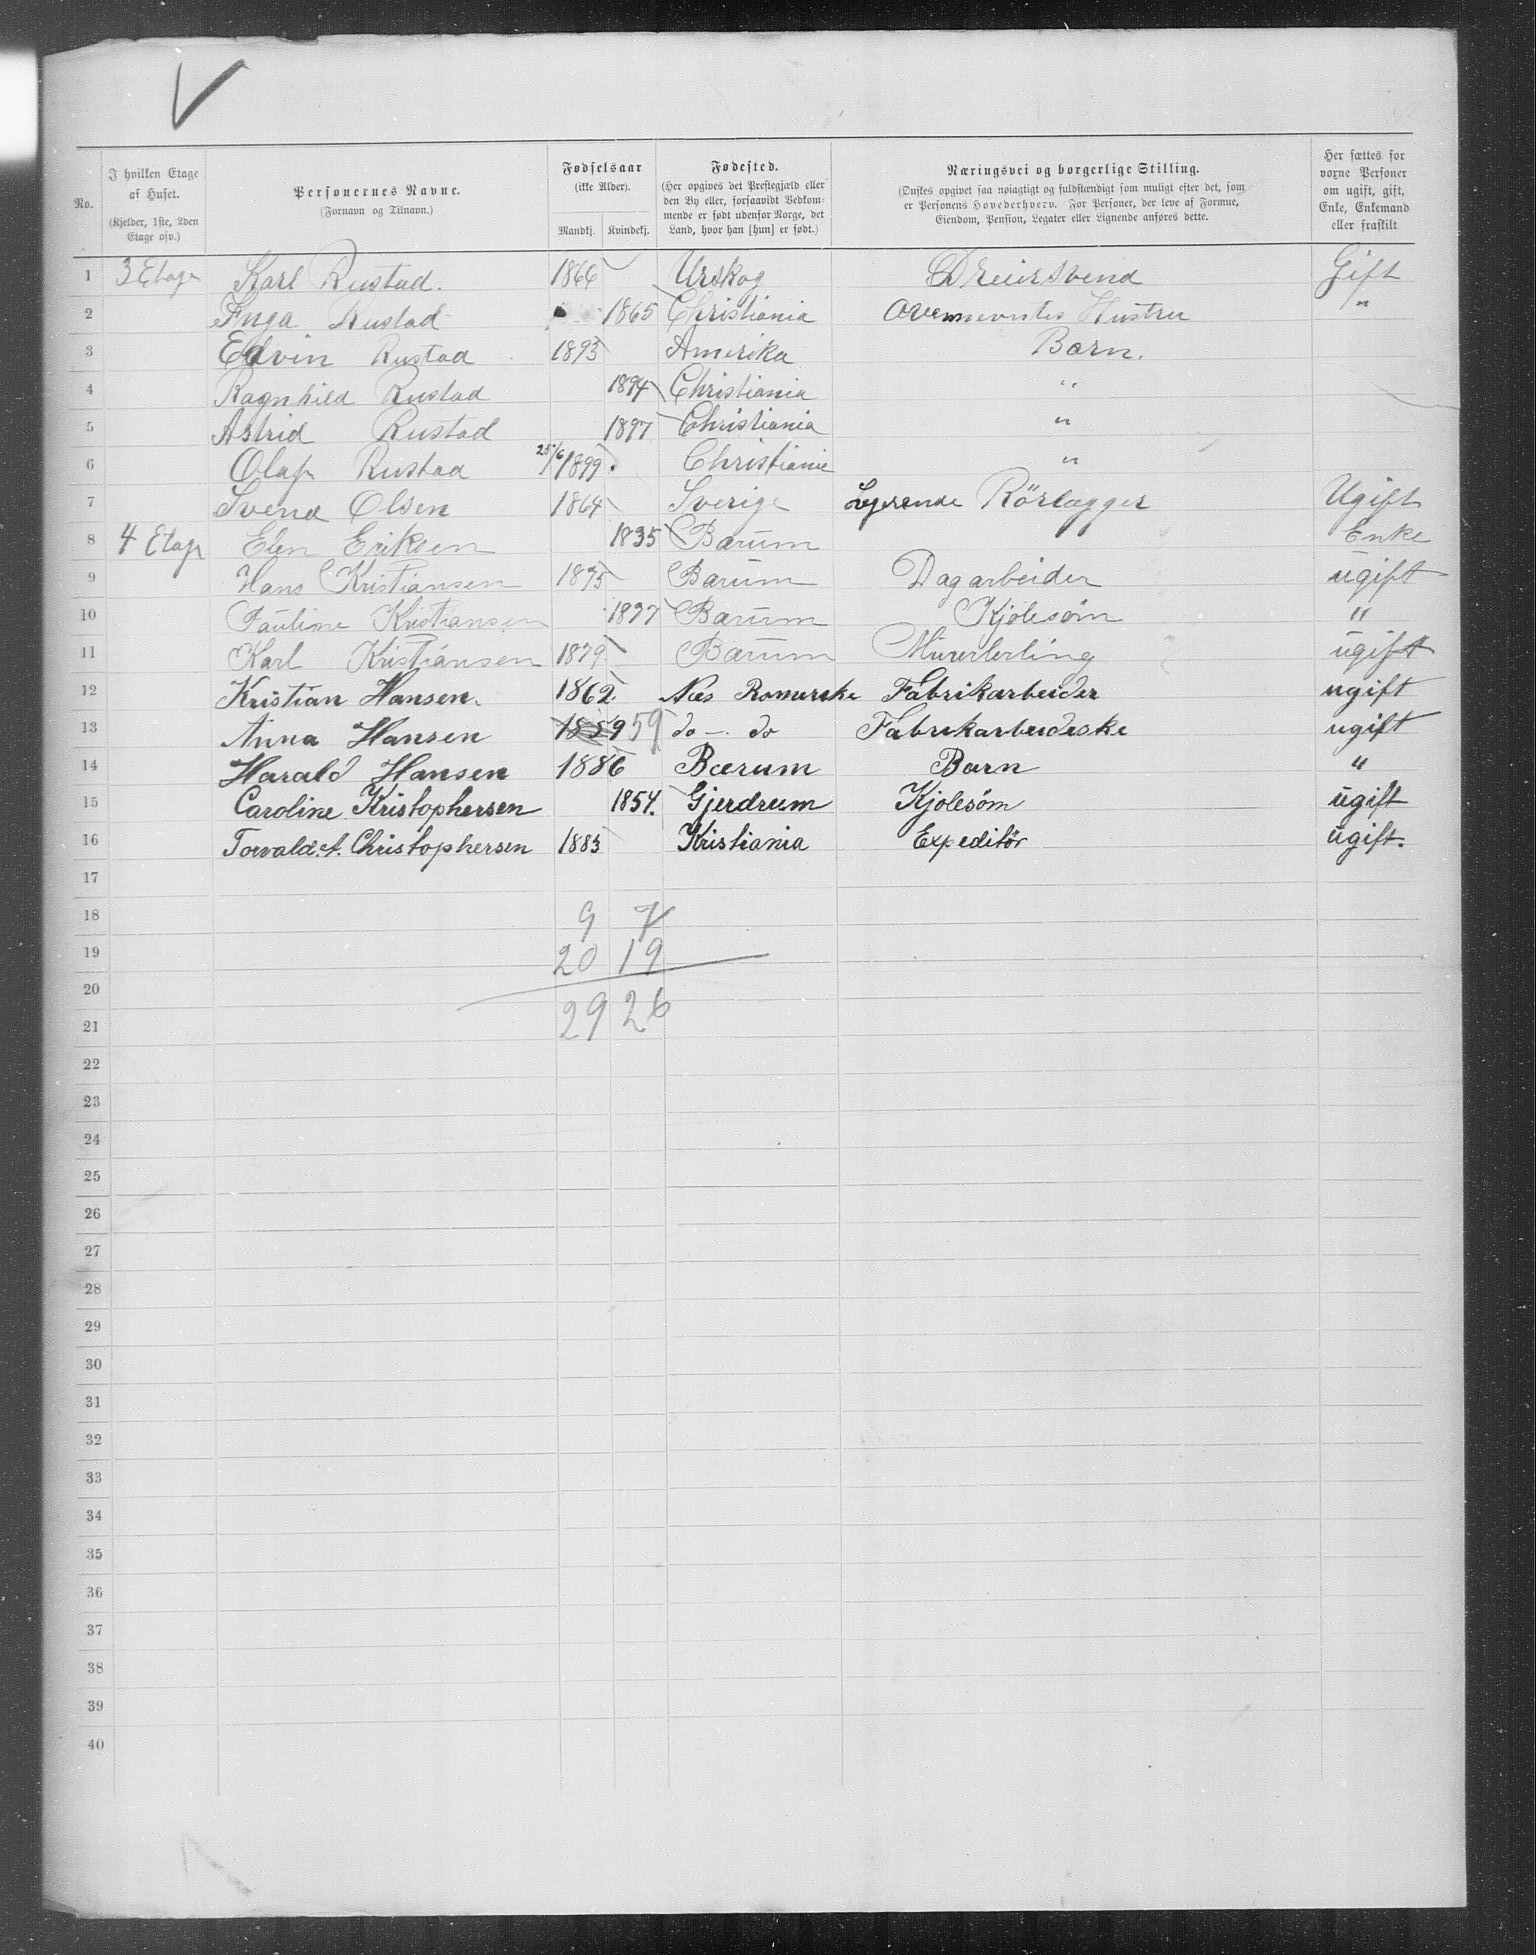 No.
I hvilken Etage af Huset.
(Kjelder, 1ste, 2den Etage osv.)
Personernes Navne.
(Fornavn og Tilnavn.)
Fødselsaar
(ikke Alder).
Mandkj. Kvindekj.
Fødested.
(Her opgives det Prestegjæld eller den By eller, forsaavidt Vedkommende er født udenfor Norge, det Land, hvor han [hun] er født.)
Næringsvei og borgerlige Stilling.
(Ønskes opgivet saa nøiagtigt og fuldstændigt som muligt efter det, som er Personens Hovederhverv. For Personer, der leve af Formue, Eiendom, Pension, Legater eller Lignende anføres dette.
Her sættes for voxne Personer om ugift, gift, Enke, Enkemand eller fraskilt
1 3 Etage Karl Rustad. 1866 Urskog Dreiersvend Gift
2 Inga Rustad 1865 Christiania Hustru "
3 Edvin Rustad 1893 Amerika Barn.
4 Ragnhild Rustad 1894 Christiania "
5 Astrid Rustad 1897 Christiania "
6 Olaf Rustad 25/6 1899 Christiania "
7 Svend Olsen 1864 Sverige Logerende Rörlægger Ugift
8 4 Etage Elen Eriksen 1835 Bærum Enke
9 Hans Kristiansen 1875 Bærum Dagarbeider ugift
10 Pauline Kristiansen 1877 Bærum Kjolesøm "
11 Karl Kristiansen 1879 Bærum Murerlerling ugift
12 Kristian Hansen. 1862. Næs Romerike Fabrikarbeider ugift
13 Anna Hansen 1859 59 do - do Fabrikarbeideske ugift
14 Harald Hansen 1886 Bærum Barn "
15 Caroline Kristophersen 1854. Gjerdrum Kjolesøm ugift
16 Torvald A. Christophersen 1883 Kristiania Expeditør ugift.
17
18 9 7
19 20 19
20
21 29 26
22
23
24
25
26
27
28
29
30
31
32
33
34
35
36
37
38
39
40